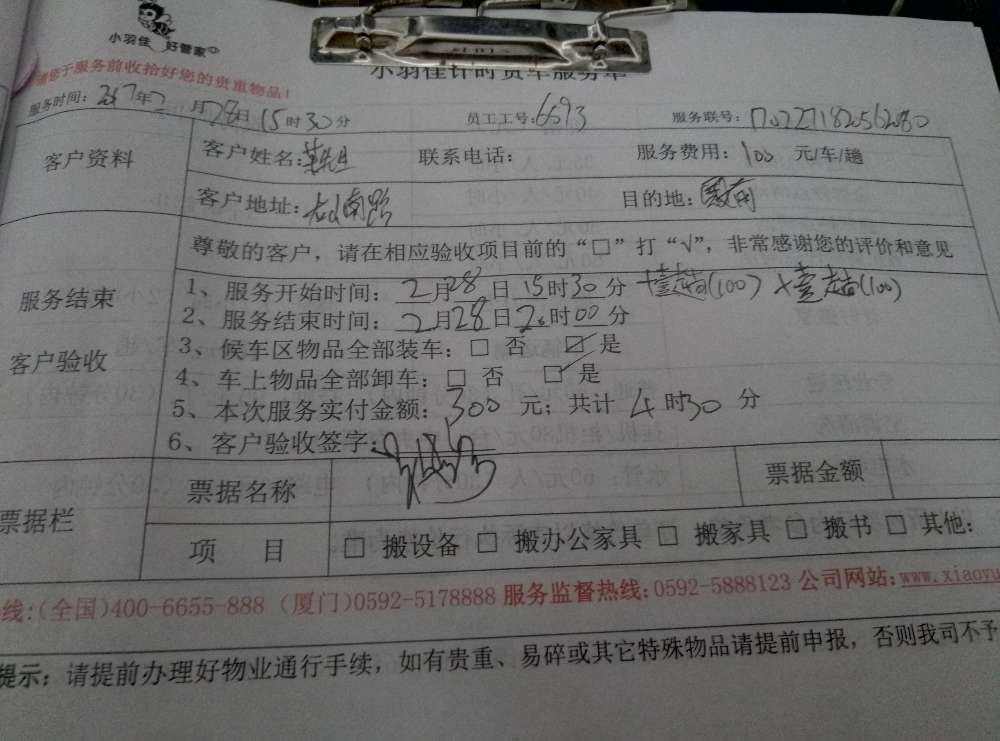 小羽佳 好管家
小羽佳计时货车服务单
请您于服务前收拾好您的贵重物品！
服务时间：2017年2月28日15时30分 员工工号：6593 服务联号：170227182562080
客户资料
客户姓名： 联系电话： 服务费用：100 元/车/趟
客户地址：南路 目的地：
尊敬的客户，请在相应验收项目前的“□”打“√”，非常感谢您的评价和意见
服务结束
客户验收
1、服务开始时间：2月28日15时30分 +壹趟(100) +壹趟(100)
2、服务结束时间：2月28日20时00分
3、候车区物品全部装车：□ 否 ☑ 是
4、车上物品全部卸车：□ 否 ☑ 是
5、本次服务实付金额：300 元；共计 4时30 分
6、客户验收签字：
票据栏
票据名称 票据金额
项 目 □ 搬设备 □ 搬办公家具 □ 搬家具 □ 搬书 □ 其他：
线：(全国)400-6655-888 (厦门)0592-5178888 服务监督热线：0592-5888123 公司网站：www.xiaoyu
提示：请提前办理好物业通行手续，如有贵重、易碎或其它特殊物品请提前申报，否则我司不予